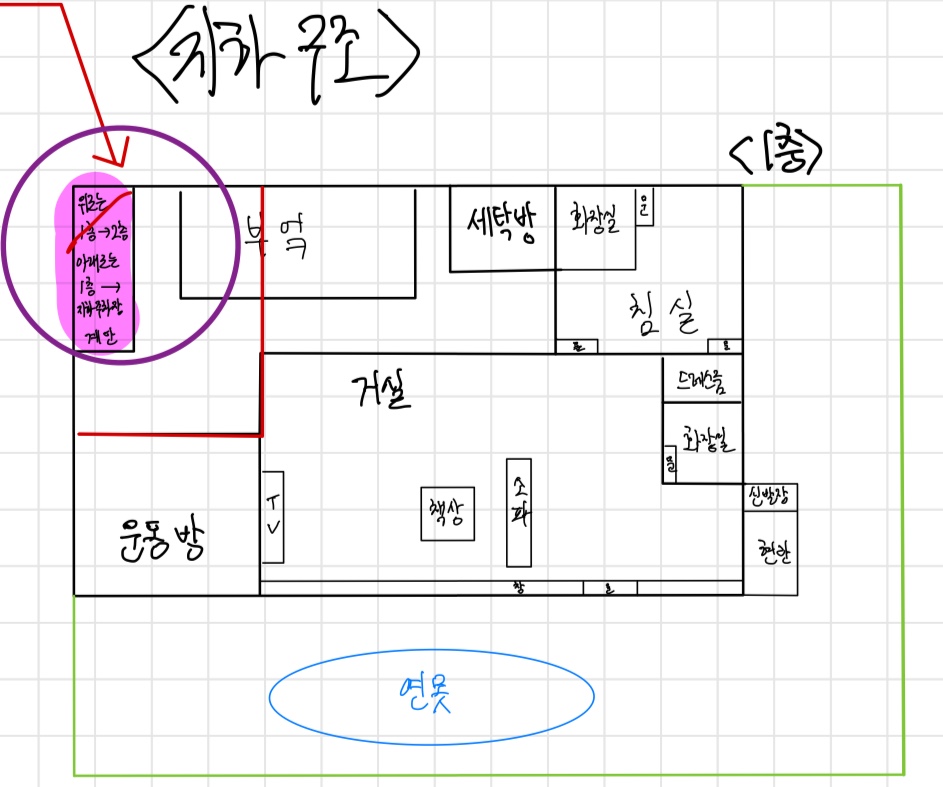 <지하 구조>
<1층>
위로는
1층→2층
아래로는
1층→
지하주차장
계단
부엌
세탁방
화장실
문
침실
문
문
거실
드레스룸
화장실
문
신발장
현관
운동방
TV
책상
소파
창
문
연못